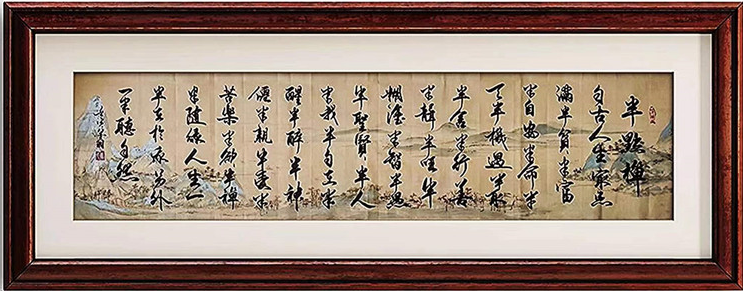 半點禪
自古人生最忌
滿半貧半富
半自安半命半
天半機遇半取
半舍半行善
半聾半啞半
糊塗半智半愚
半聖賢半人
半我半自在半
醒半醉半神
僊半親半愛半
苦樂半俗半禪
半隨緣人生一
半在於我另外
一半聽自然